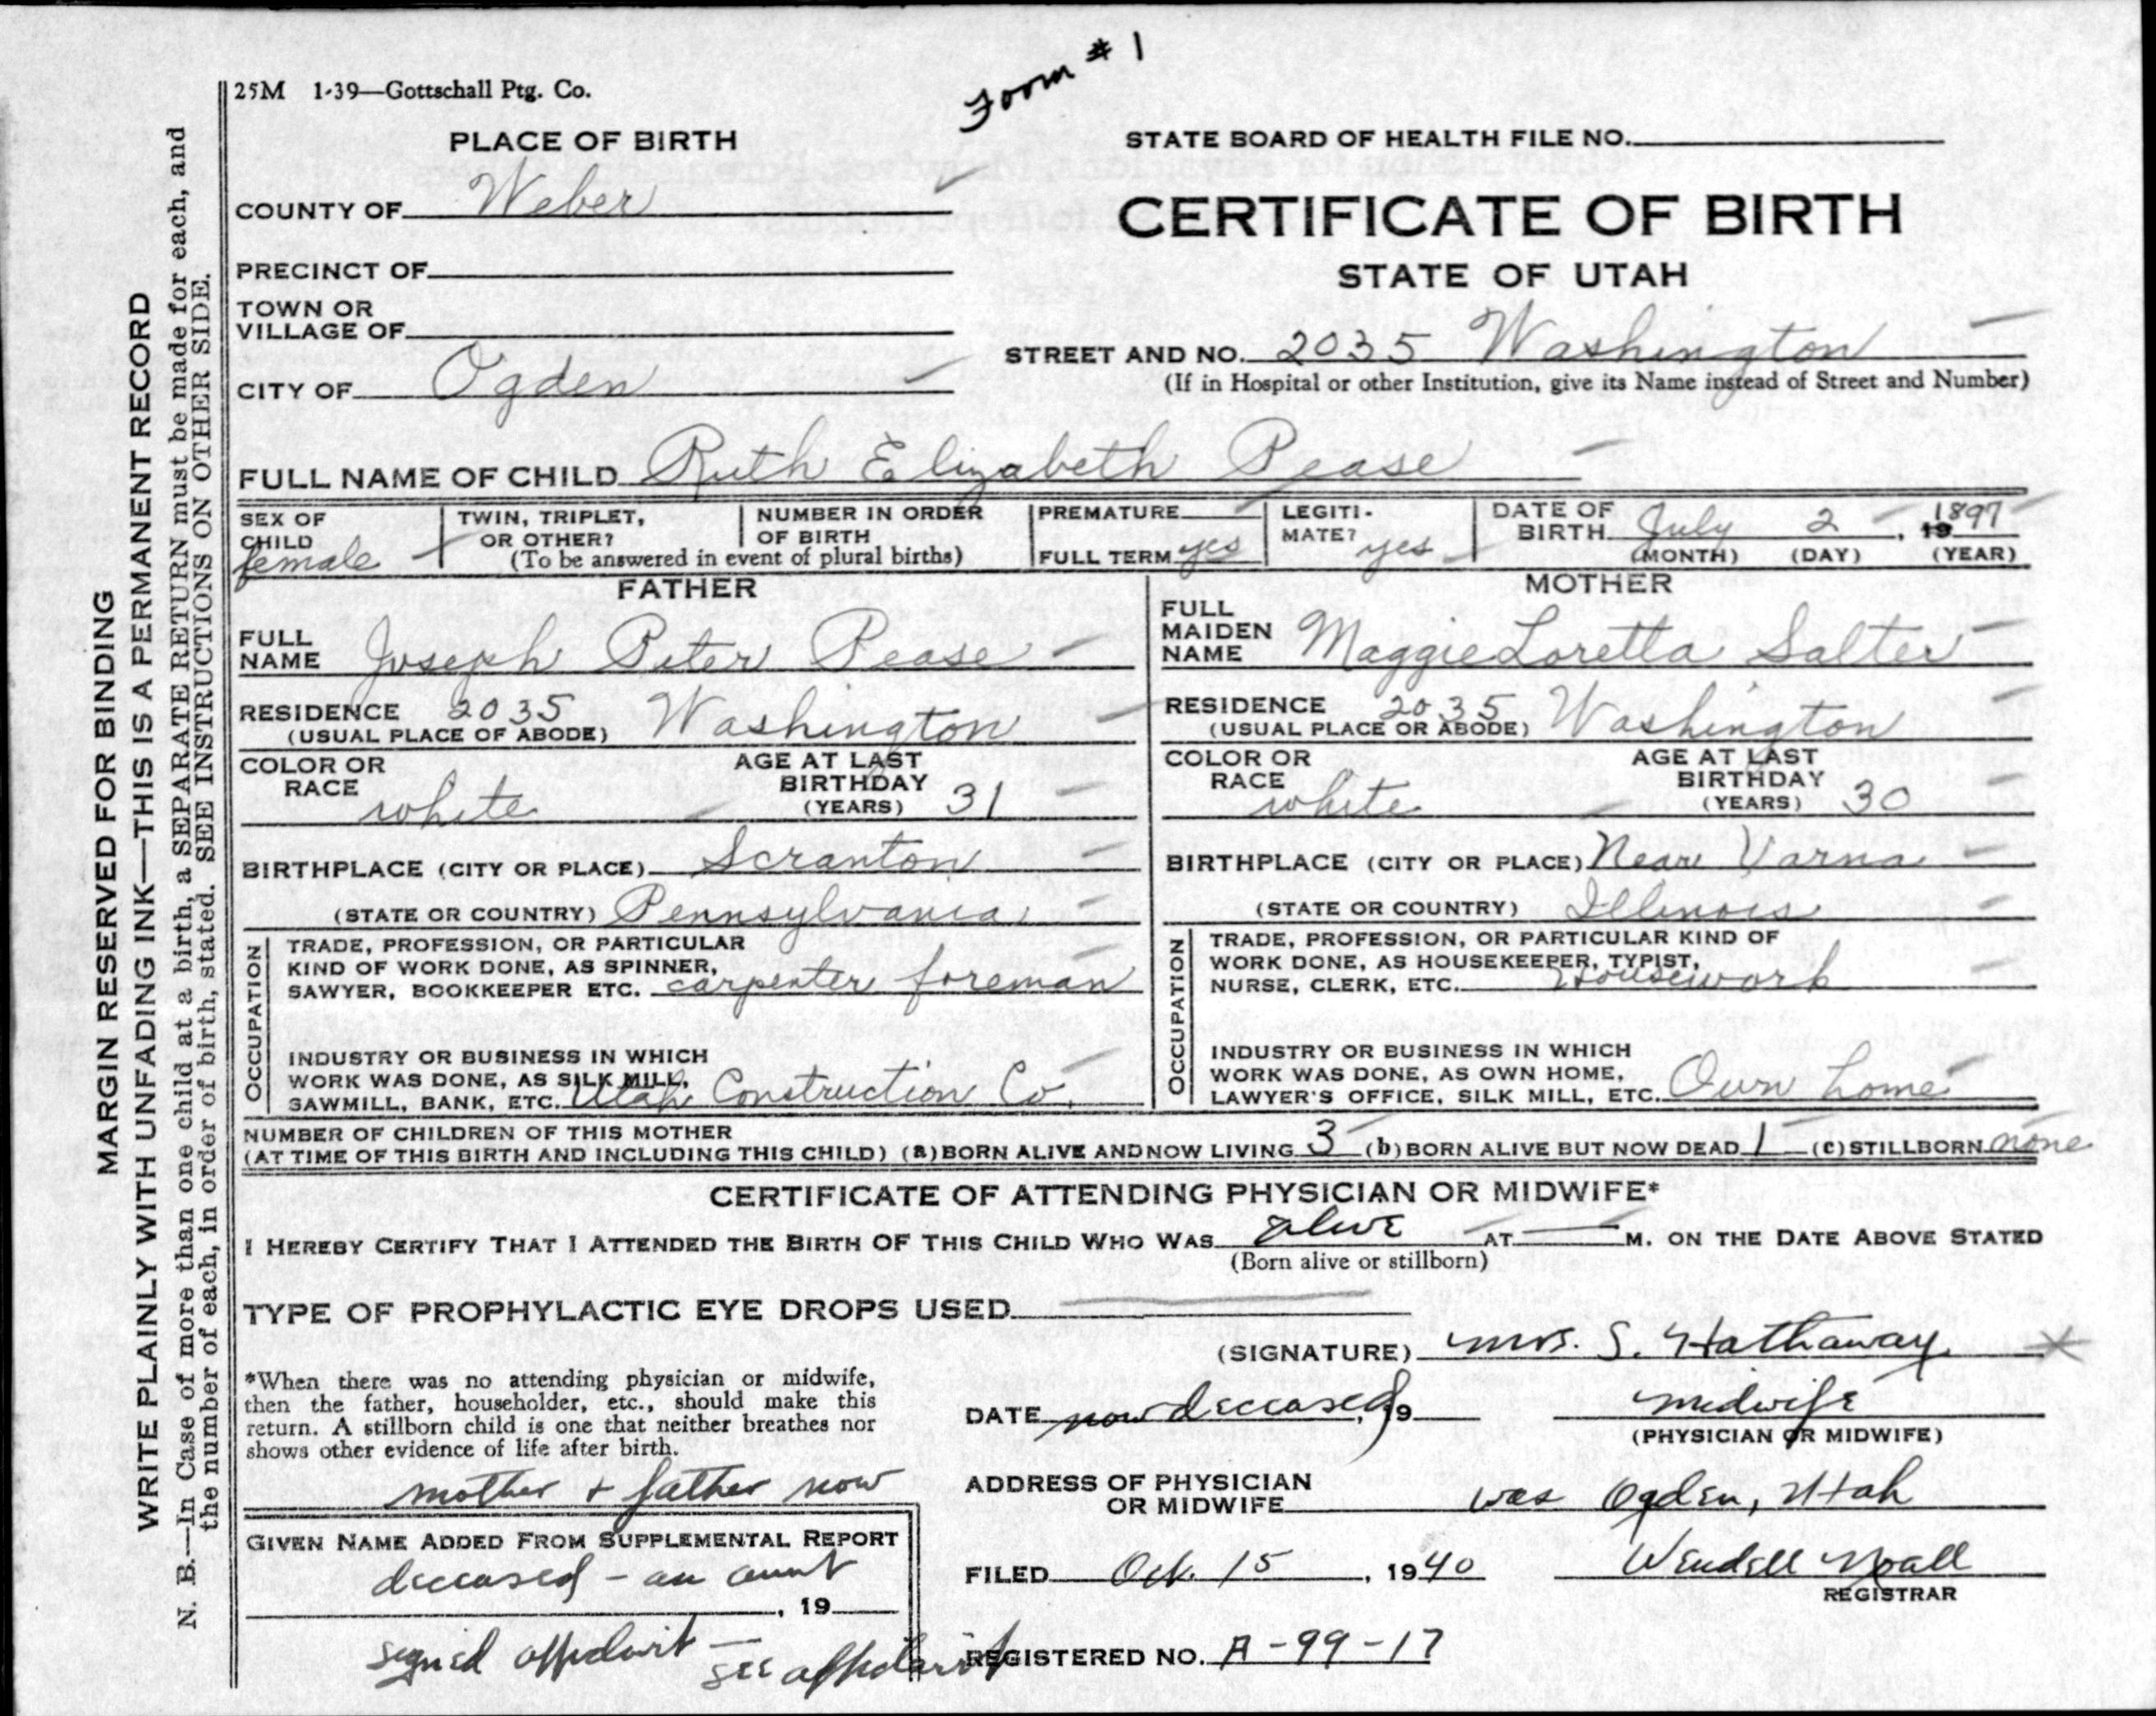 Form # 1
25M 1-39—Gottschall Ptg. Co.
PLACE OF BIRTH
STATE BOARD OF HEALTH FILE NO.
COUNTY OF Weber
CERTIFICATE OF BIRTH
PRECINCT OF
STATE OF UTAH
TOWN OR
VILLAGE OF
STREET AND NO. 2035 Washington
(If in Hospital or other Institution, give its Name instead of Street and Number)
CITY OF Ogden
FULL NAME OF CHILD Ruth Elizabeth Pease
SEX OF
CHILD
female
TWIN, TRIPLET,
OR OTHER?
NUMBER IN ORDER
OF BIRTH
(To be answered in event of plural births)
PREMATURE
FULL TERM yes
LEGITI-
MATE? yes
DATE OF
BIRTH July 2, 19 1897
(MONTH) (DAY) (YEAR)
FATHER
FULL
NAME Joseph Peter Pease
RESIDENCE 2035 Washington
(USUAL PLACE OF ABODE)
COLOR OR
RACE white
AGE AT LAST
BIRTHDAY
(YEARS) 31
BIRTHPLACE (CITY OR PLACE) Scranton
(STATE OR COUNTRY) Pennsylvania
OCCUPATION
TRADE, PROFESSION, OR PARTICULAR
KIND OF WORK DONE, AS SPINNER,
SAWYER, BOOKKEEPER ETC. carpenter foreman
INDUSTRY OR BUSINESS IN WHICH
WORK WAS DONE, AS SILK MILL,
SAWMILL, BANK, ETC. Utah Construction Co.
MOTHER
FULL
MAIDEN
NAME Maggie Loretta Salter
RESIDENCE 2035 Washington
(USUAL PLACE OR ABODE)
COLOR OR
RACE white
AGE AT LAST
BIRTHDAY
(YEARS) 30
BIRTHPLACE (CITY OR PLACE) Near Varna
(STATE OR COUNTRY) Illinois
OCCUPATION
TRADE, PROFESSION, OR PARTICULAR KIND OF
WORK DONE, AS HOUSEKEEPER, TYPIST,
NURSE, CLERK, ETC. Housework
INDUSTRY OR BUSINESS IN WHICH
WORK WAS DONE, AS OWN HOME,
LAWYER'S OFFICE, SILK MILL, ETC. Own home
NUMBER OF CHILDREN OF THIS MOTHER
(AT TIME OF THIS BIRTH AND INCLUDING THIS CHILD) (a) BORN ALIVE AND NOW LIVING 3 (b) BORN ALIVE BUT NOW DEAD 1 (c) STILLBORN none
CERTIFICATE OF ATTENDING PHYSICIAN OR MIDWIFE*
I HEREBY CERTIFY THAT I ATTENDED THE BIRTH OF THIS CHILD WHO WAS alive AT M. ON THE DATE ABOVE STATED
(Born alive or stillborn)
TYPE OF PROPHYLACTIC EYE DROPS USED
(SIGNATURE) Mrs. S. Hathaway
*When there was no attending physician or midwife,
then the father, householder, etc., should make this
return. A stillborn child is one that neither breathes nor
shows other evidence of life after birth.
DATE now deceased, 19 midwife
(PHYSICIAN OR MIDWIFE)
mother + father now
ADDRESS OF PHYSICIAN
OR MIDWIFE was Ogden, Utah
GIVEN NAME ADDED FROM SUPPLEMENTAL REPORT
deceased - an aunt
, 19
FILED Oct. 15, 1940 Wendell Noall
REGISTRAR
signed affidavit — see affidavit
REGISTERED NO. A-99-17
MARGIN RESERVED FOR BINDING
WRITE PLAINLY WITH UNFADING INK—THIS IS A PERMANENT RECORD
N. B.—In Case of more than one child at a birth, a SEPARATE RETURN must be made for each, and
the number of each, in order of birth, stated. SEE INSTRUCTIONS ON OTHER SIDE.